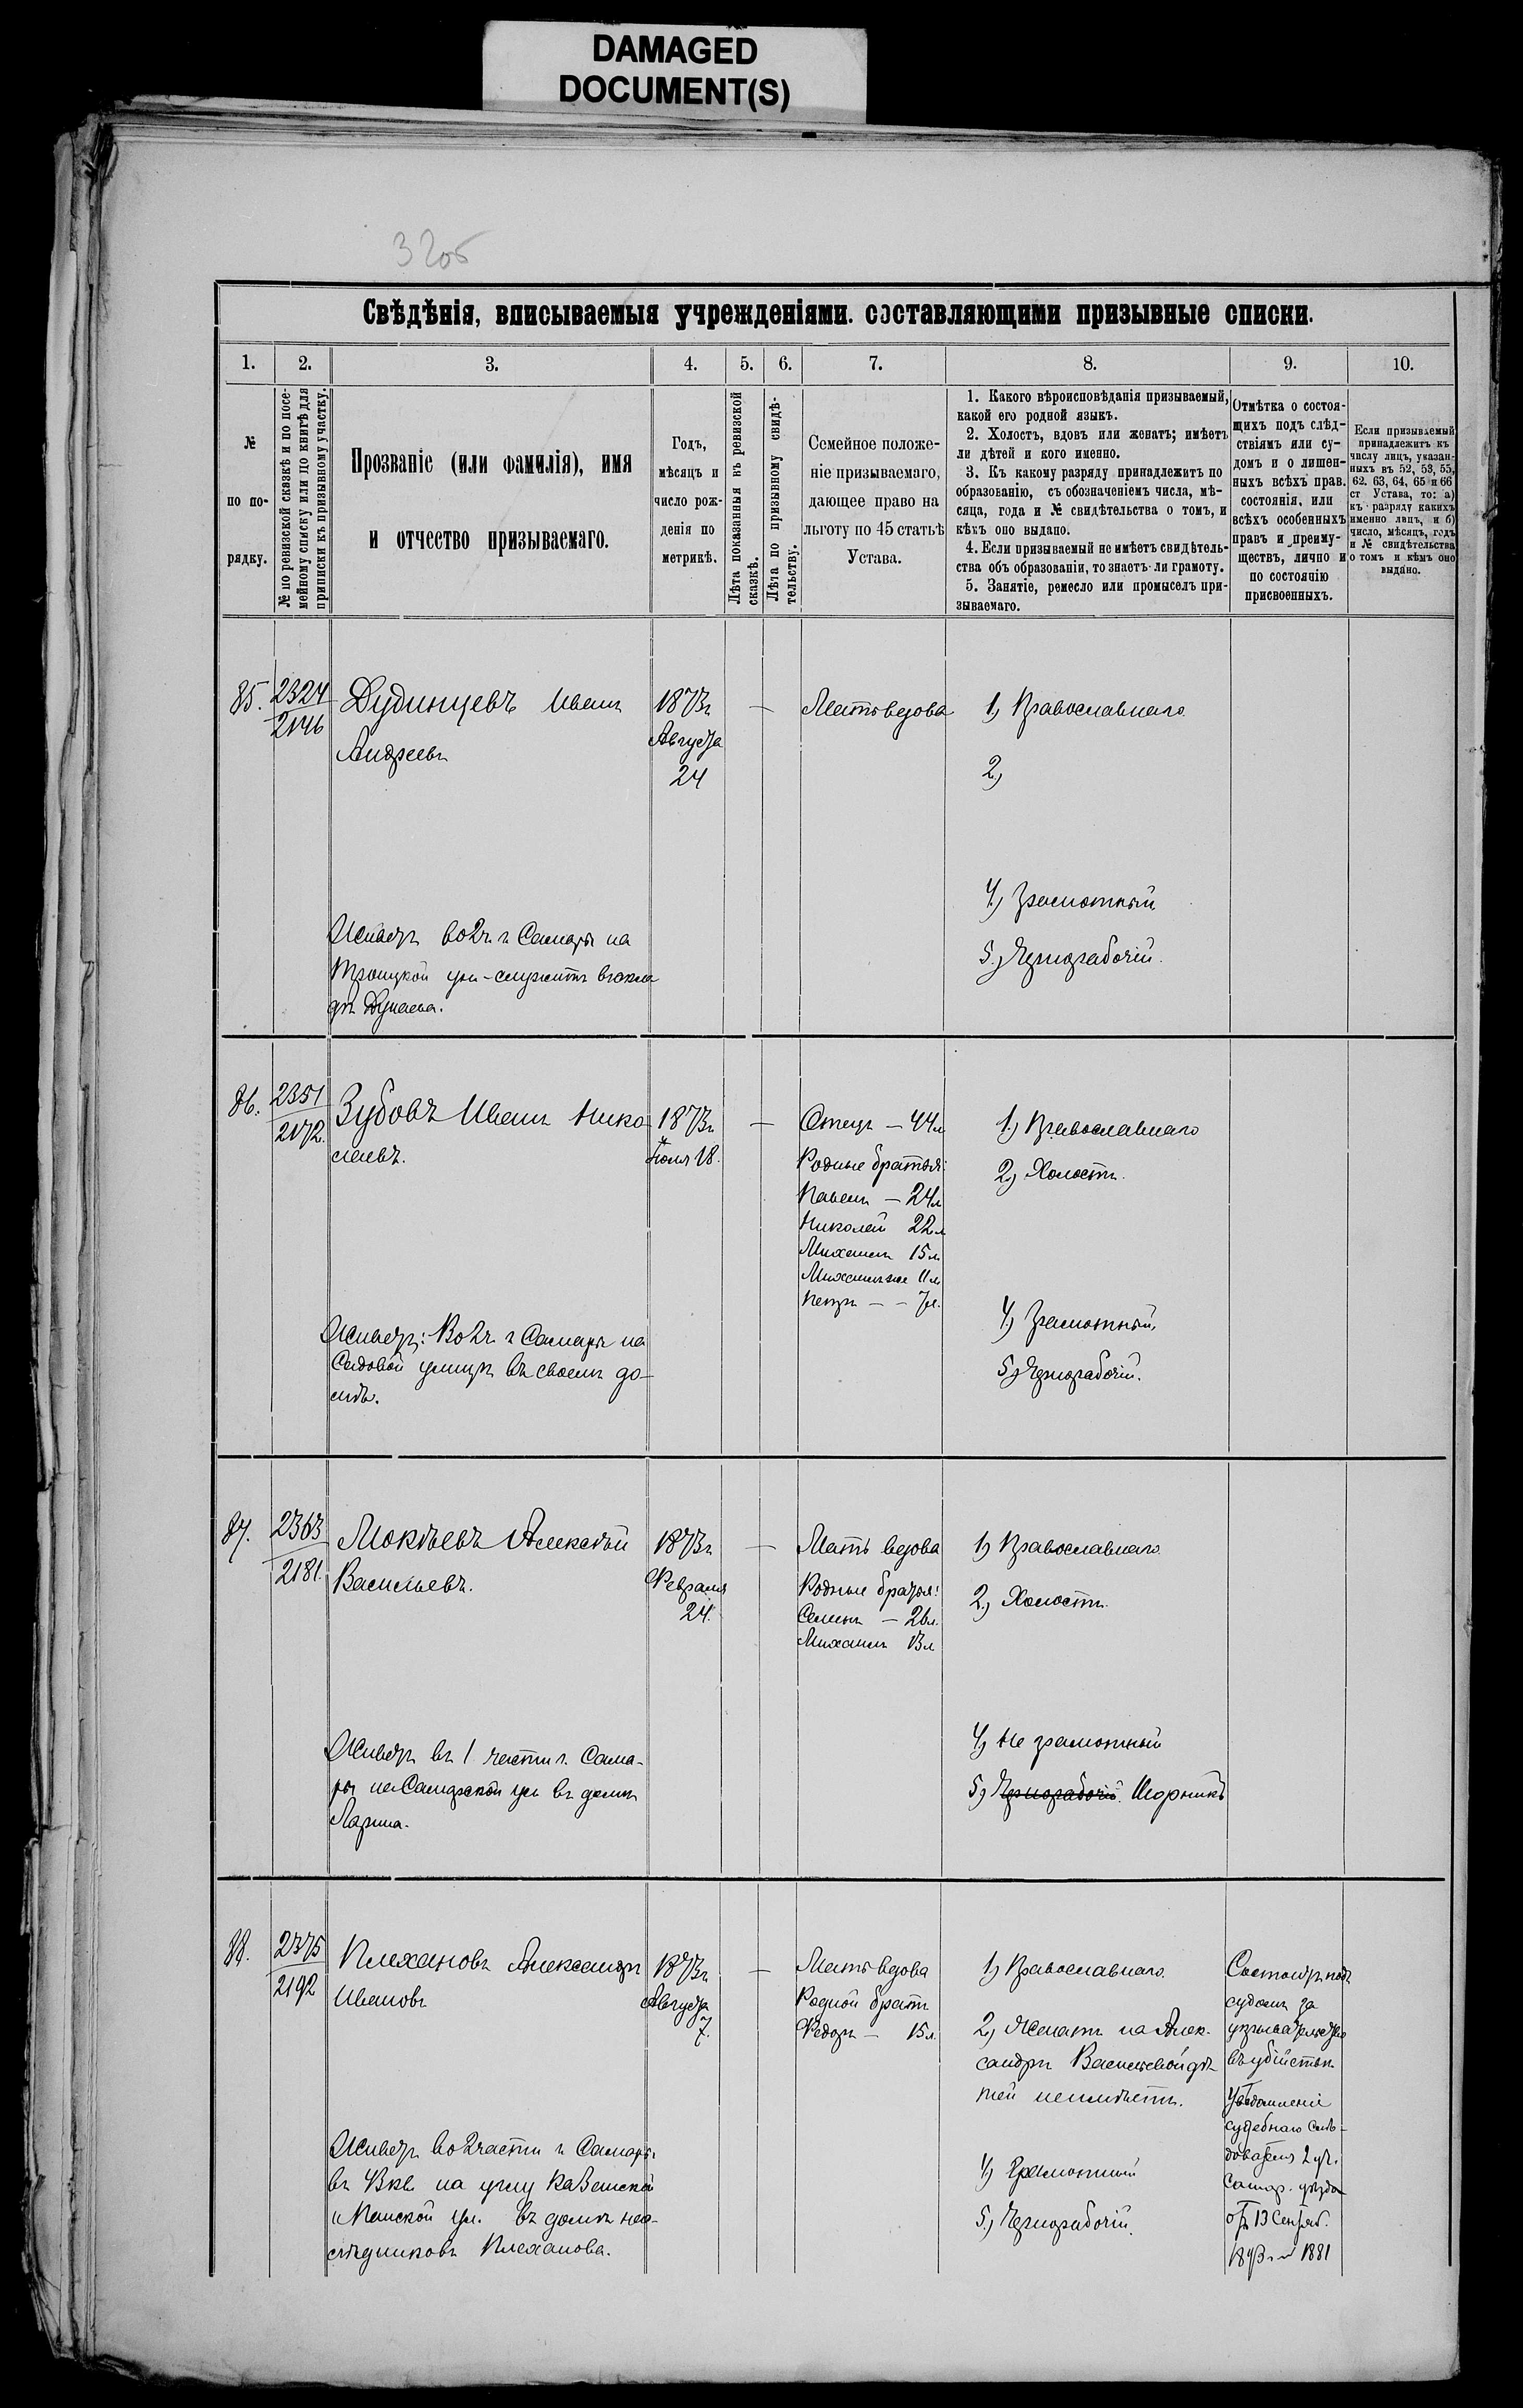 DAMAGED
DOCUMENT(S)
32об
Свѣдѣнія, вписываемыя учрежденіями. составляющими призывные списки.
1. 2. 3. 4. 5. 6. 7. 8. 9. 10.
№
по по-
рядку.
№ по ревизской сказкѣ и по посе-
мейному списку или по книгѣ для
приписки къ призывному участку.
Прозваніе (или фамилія), имя
и отчество призываемаго.
Годъ,
мѣсяцъ и
число рож-
денія по
метрикѣ.
Лѣта показанныя къ ревизской
сказкѣ.
Лѣта по призывному свидѣ-
тельству.
Семейное положе-
ніе призываемаго,
дающее право на
льготу по 45 статьѣ
Устава.
1. Какого вѣроисповѣданія призываемый,
какой его родной языкъ.
2. Холостъ, вдовъ или женатъ; имѣетъ
ли дѣтей и кого именно.
3. Къ какому разряду принадлежитъ по
образованію, съ обозначеніемъ числа, мѣ-
сяца, года и № свидѣтельства о томъ, и
кѣмъ оно выдано.
4. Если призываемый не имѣетъ свидѣтель-
ства объ образованіи, то знаетъ ли грамоту.
5. Занятіе, ремесло или промыселъ при-
зываемаго.
Отмѣтка о состоя-
щихъ подъ слѣд-
ствіямъ или су-
домъ и о лишен-
ныхъ всѣхъ прав.
состоянія, или
всѣхъ особенныхъ
правъ и преиму-
ществъ, лично и
по состоянію
присвоенныхъ.
Если призываемый
принадлежитъ къ
числу лицъ, указан-
ныхъ въ 52, 53, 55,
62. 63, 64, 65 и 66
ст Устава, то: а)
къ разряду какихъ
именно лицъ, и б)
число, мѣсяцъ, годъ
и № свидѣтельства
о томъ и кѣмъ оно
выдано.
85. 2324 Дудинцевъ Иванъ 1873г — Мать вдова 1) Православнаго
2146 Андреевъ Августа
24 2)
4) Грамотный
5.) Чернорабочій.
Живетъ во 2ч. г. Самары на
Троицкой ул - служитъ въ скла
дѣ Дунаева.
86. 2351 Зубовъ Иванъ Нико 1873г — Отецъ — 44л 1.) Православнаго
2172. лаевъ. Іюля 18. Родные братья: 2) Холостъ.
Павелъ — 24л
Николай 22л
Михаилъ 15л
Михаилъ же 11л
Петръ — — 7л.
4) Грамотный,
5) Чернорабочій.
Живетъ: Во 2ч. г Самары на
Садовой улицѣ въ своемъ до-
мѣ.
87. 2363 Мокѣевъ Алексѣй 1873г — Мать вдова 1) Православнаго
2181. Васильевъ. Февраля Родные братья: 2.) Холостъ.
24. Семенъ — 26л.
Михаилъ 13л
4) Не грамотный
5) Чернорабочій. Шорникъ
Живетъ въ 1 части г. Сама-
ры на Самарской ул въ домѣ
Ларина.
88. 2375 Плехановъ Александръ 1873г — Мать вдова 1) Православнаго
2192 Ивановъ Августа Родной братъ
7. Федоръ — 15л.
2) Женатъ на Алек-
сандрѣ Васильевой дѣ
тей неимѣетъ.
4) Грамотный
5.) Чернорабочій.
Состоитъ подъ
судомъ за
укрывательство
въ убійствѣ
Увѣдомленіе
судебнаго слѣ-
дователя 2 уч.
Самар. уѣзда
отъ 13 Сентяб.
1893г № 1881
Живетъ во 2 части г. Самары
въ 3 кв. на углу Казанской
и Панской ул. въ домѣ нас-
лѣдниковъ Плеханова.